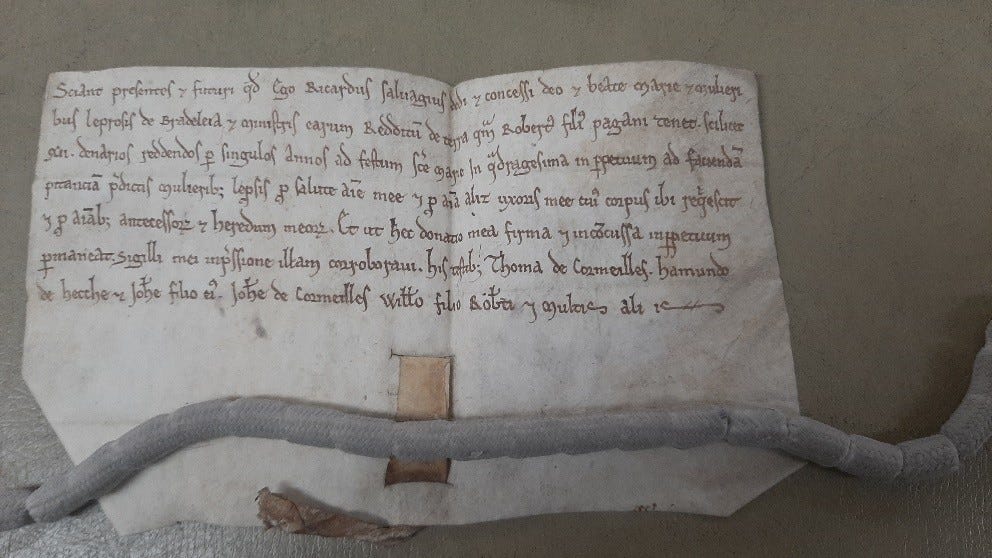 Sciant presentes ⁊ futuri qd̄ Ego Ricardus saluagius dedi ⁊ concessi deo ⁊ beate Marie ⁊ mulieri
bus leprosis de Bradeleia ⁊ ministris earum Redditū de terra quā Robertꝰ filiꝰ pagani tenet. scilicet
xii. denarios reddendos ꝑ singulos Annos ad festum Sc̄e Marie In q̄dragesima in ꝑpetuum ad faciendā
pitanciā p̄dictis mulieribꝫ lepsis ꝓ salute aīe mee ⁊ ꝓ aīa aliz uxoris mee cuiꝰ corpus ibi reqͥescit
⁊ ꝓ aīabꝫ antecessoꝝ ⁊ heredum meoꝝ. Et ut hec donatio mea firma ⁊ incōcussa inꝑpetuum
ꝑmaneat. Sigilli mei inp̄ssione illam corroboraui. his testibꝫ Thoma de Cormeilles. hamundo
de hecche ⁊ Joh̄e filio eiꝰ. Joh̄e de Cormeilles Will̄o filio Rob̄ti ⁊ multis ali is